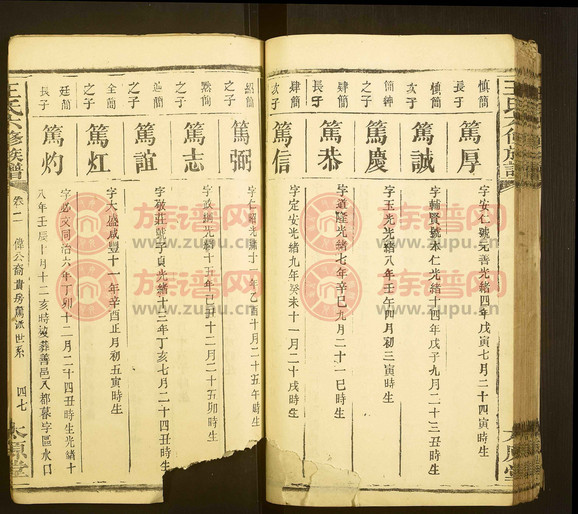 慎簡
長子
篤厚
字安仁號元善光緒四年戊寅七月二十四寅時生
次子
篤誠
字輔賢號本仁光緒十四年戊子九月二十三丑時生
之子
篤慶
字玉光光緒八年壬午四月初三寅時生
肆簡
長子
篤恭
字道隆光緒七年辛巳九月二十一巳時生
肆簡
次子
篤信
字定安光緒九年癸未十一月二十戌時生
之子
篤弼
年乙酉十月二十五午時生
之子
篤志
光緒十五年己丑十二月二十五卯時生
之子
篤誼
光緒十三年丁亥七月二十四丑時生
全簡
之子
篤灴
字大盛咸豐十一年辛酉正月初五寅時生
廷簡
長子
篤灼
字必文同治六年丁卯十二月二十四丑時生光緒十
八年壬辰十月十二亥時歿葬善邑八都暮字區水口
王氏六修族譜
卷二
偉公裔貴房篤派世系
四七
太原堂
族谱网
www.zupu.cn
族谱网
www.zupu.cn
族谱网
www.zupu.cn
族谱网
www.zupu.cn
族谱网
www.zupu.cn
族谱网
www.zupu.cn